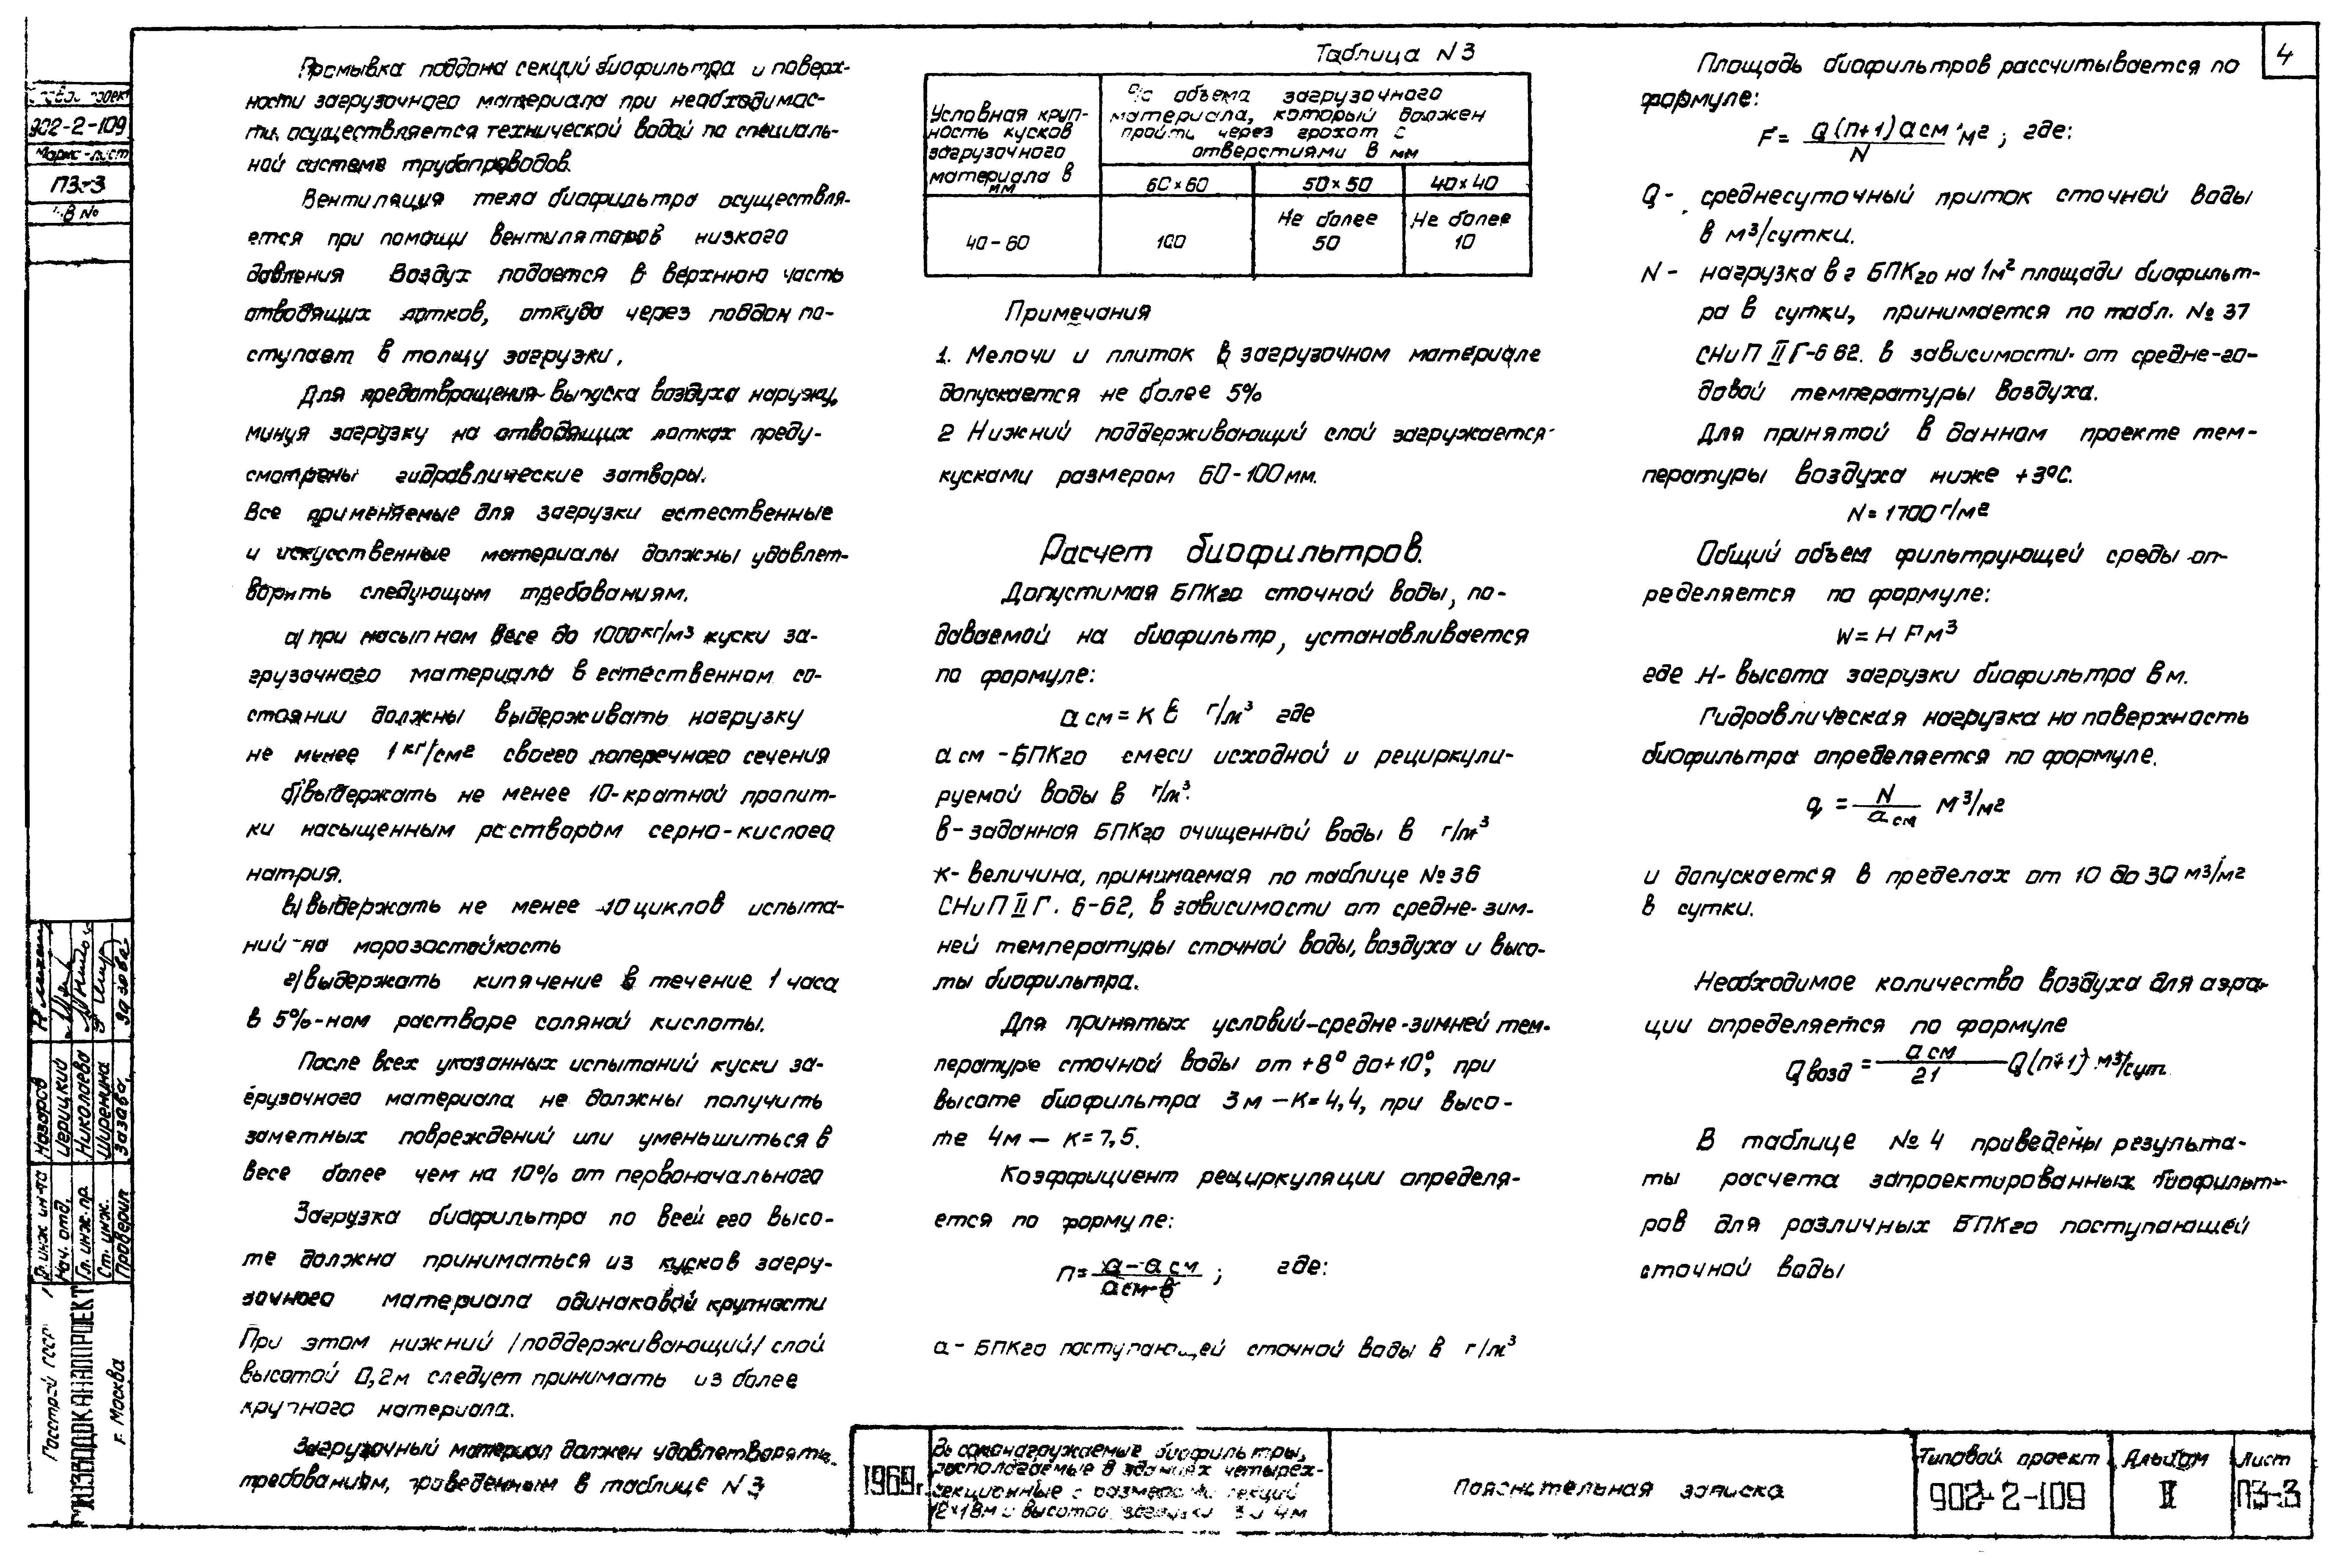 4
Промывка поддона секций биофильтра и поверх-
ности загрузочного материала при необходимос-
ти осуществляется технической водой по специаль-
ной системе трубопроводов.
Вентиляция тела биофильтра осуществля-
ется при помощи вентиляторов низкого
давления Воздух подается в верхнюю часть
отводящих лотков, откуда через поддон по-
ступает в толщу загрузки.
Для предотвращения выпуска воздуха наружу,
минуя загрузку на отводящих лотках преду-
смотрены гидравлические затворы.
Все применяемые для загрузки естественные
и искусственные материалы должны удовлет-
ворить следующим требованиям.
а) при насыпном весе до 1000 кг/м3 куски за-
грузочного материала в естественном со-
стоянии должны выдерживать нагрузку
не менее 1 кг/см2 своего поперечного сечения
б) выдержать не менее 10-кратной пропит-
ки насыщенным раствором серно-кислого
натрия.
в) выдержать не менее 10 циклов испыта-
ний на морозостойкость
г) выдержать кипячение в течение 1 часа
в 5%-ном растворе соляной кислоты.
После всех указанных испытаний куски за-
грузочного материала не должны получить
заметных повреждений или уменьшиться в
весе более чем на 10% от первоначального
Загрузка биофильтра по всей его высо-
те должна приниматься из кусков загру-
зочного материала одинаковой крупности
При этом нижний /поддерживающий/ слой
высотой 0,2м следует принимать из более
крупного материала.
Загрузочный материал должен удовлетворять
требованиям, приведенным в таблице N 3
Таблица N 3
Условная круп-
ность кусков
загрузочного
материала в
мм
% объема загрузочного
материала, который должен
пройти через грохот с
отверстиями в мм
60×60 50×50 40×40
40-60 100 Не более 50 Не более 10
Примечания
1. Мелочи и плиток в загрузочном материале
допускается не более 5%
2 Нижний поддерживающий слой загружается
кусками размером 60-100мм.
Расчет биофильтров.
Допустимая БПК20 сточной воды, по-
даваемой на биофильтр, устанавливается
по формуле:
а см = К в г/м³ где
а см - БПК20 смеси исходной и рециркули-
руемой воды в г/м³.
в - заданная БПК20 очищенной воды в г/м³
к - величина, принимаемая по таблице №36
СНиП II Г. 6-62, в зависимости от средне-зим-
ней температуры сточной воды, воздуха и высо-
ты биофильтра.
Для принятых условий-средне-зимней тем-
пературе сточной воды от +8° до+10°, при
высоте биофильтра 3м — К=4,4, при высо-
те 4м — К=7,5.
Коэффициент рециркуляции определя-
ется по формуле:
n = (а - а см) / (а см - в) ; где:
а - БПК20 поступающей сточной воды в г/м³
Площадь биофильтров рассчитывается по
формуле:
F = Q (n+1) а см / N м2 ; где:
Q - среднесуточный приток сточной воды
в м3/сутки.
N - нагрузка в г БПК20 на 1м² площади биофильт-
ра в сутки, принимается по табл. № 37
СНиП II Г-6 62. в зависимости от средне-го-
довой температуры воздуха.
Для принятой в данном проекте тем-
пературы воздуха ниже +3°С.
N = 1700 г/м2
Общий объем фильтрующей среды оп-
ределяется по формуле:
W = H F м³
где H - высота загрузки биофильтра в м.
Гидравлическая нагрузка на поверхность
биофильтра определяется по формуле.
q = N / а см м³/м2
и допускается в пределах от 10 до 30 м3/м2
в сутки.
Необходимое количество воздуха для аэра-
ции определяется по формуле
Q возд = а см / 21 Q(n+1) м3/сут.
В таблице № 4 приведены результа-
ты расчета запроектированных биофильт-
ров для различных БПК20 поступающей
сточной воды
902-2-109
Марка-лист
ПЗ-3
Инв №
Гл. инж. ин-та Назаров
Нач. отд. Церицкий
Гл. инж. пр. Николаева
Ст. инж. Ширенина
Проверил
г. Москва
1969г.
Высоконагружаемые биофильтры,
располагаемые в зданиях четырех-
секционные с размерами секций
12×18м и высотой загрузки 3 и 4м
Пояснительная записка
Типовой проект
902-2-109
Альбом
II
Лист
ПЗ-3